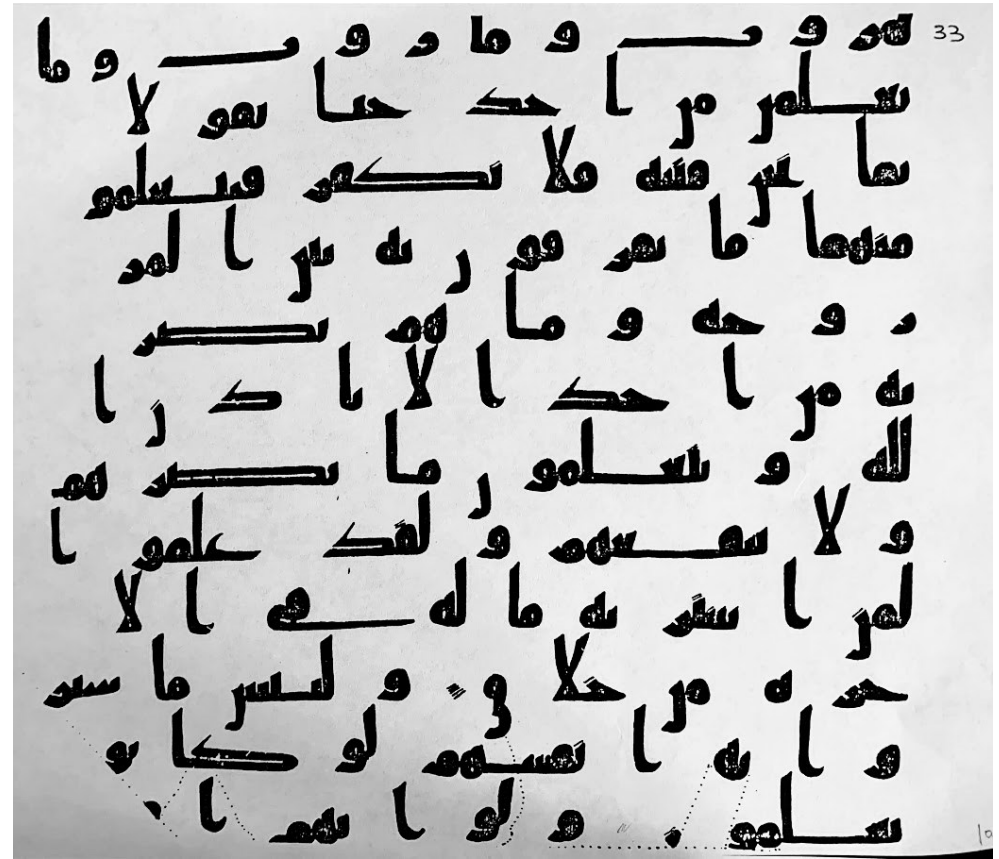 33
هر و ت و ما ر و ت و ما
يعلمن من ا حد حتا يقو لا
نما نحن فتنه فلا تكفر فيتعلمو
منهما ما يفر قو ن به بين ا لمر
ز و جه و ما هم بضر
به من ا حد ا لا با ذ ن ا
لله و يتعلمو ن ما يضر هم
و لا ينفعهم و لقد علمو ا
لمن ا شتر يه ما له في ا لا
خر ه من خلا ق و لبيس ما شر
و ا به ا نفسهم لو كا نو
يعلمو ن و لو ا نهم ا